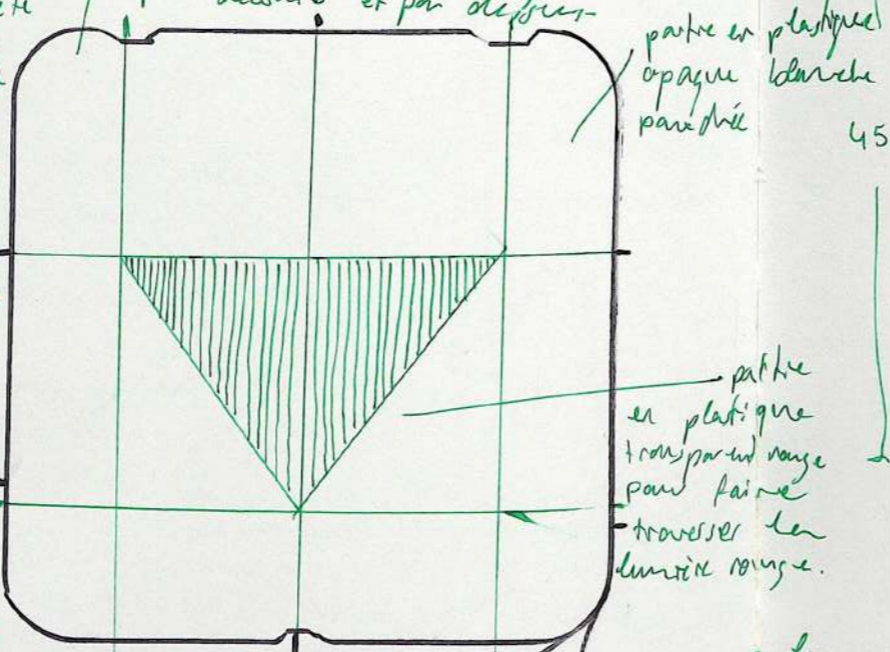 et par dessus
partie en plastique
opaque blanche
45
partie
en plastique
transparent rouge
pour faire
traverser la
lumière rouge.